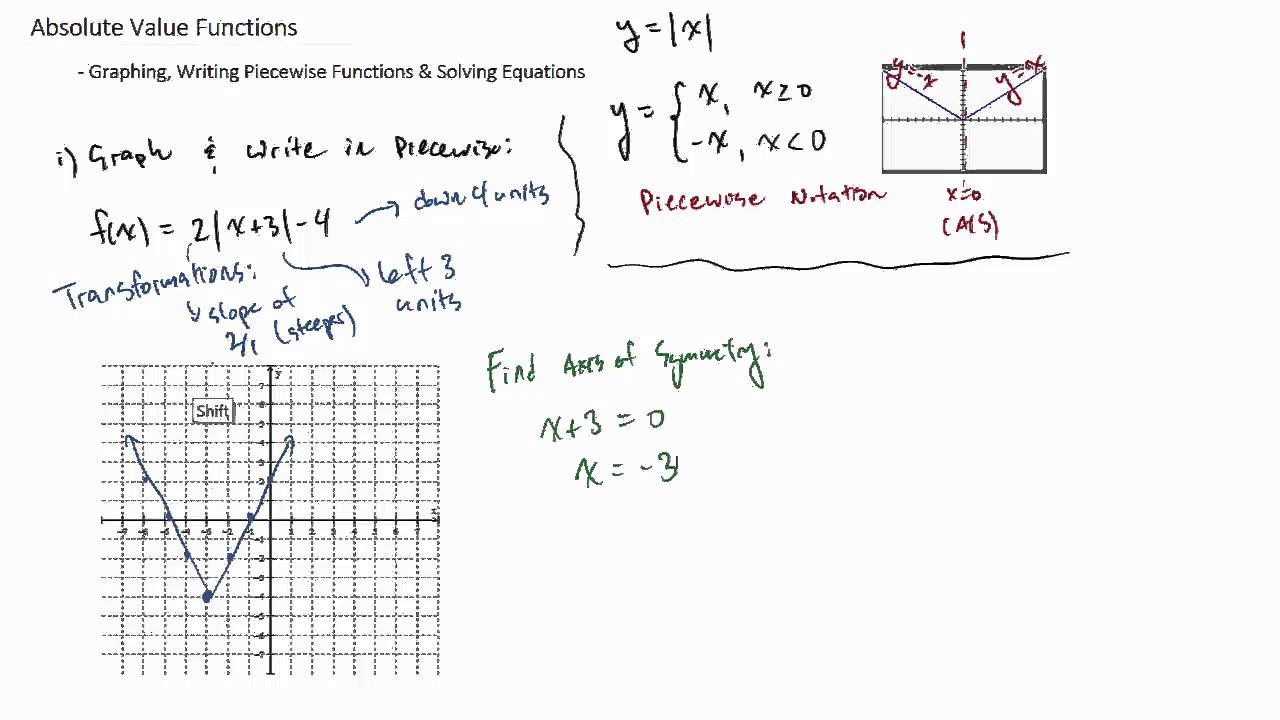 Absolute Value Functions
- Graphing, Writing Piecewise Functions & Solving Equations
i) Graph & Write in Piecewise:
f(x) = 2|x+3|-4
down 4 units
Transformations:
slope of
2/1 (steeper)
left 3
units
y = |x|
y = { x, x ≥ 0
-x, x < 0
Piecewise Notation
y = -x
y = x
x=0
(A/S)
Shift
y
x
Find Axis of Symmetry:
x+3 = 0
x = -3